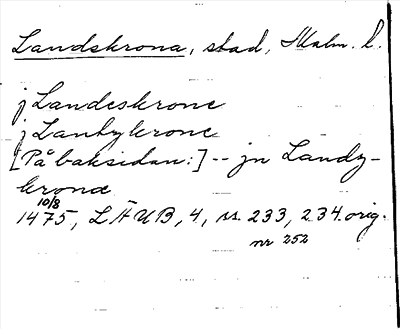 Landskrona, stad, Malm. l.
j Landeskrone
j Lantzkrone
[På baksidan:] -- jn Landz-
krone
10/8
1475, LÄUB, 4, ss. 233, 234. orig.
nr 252